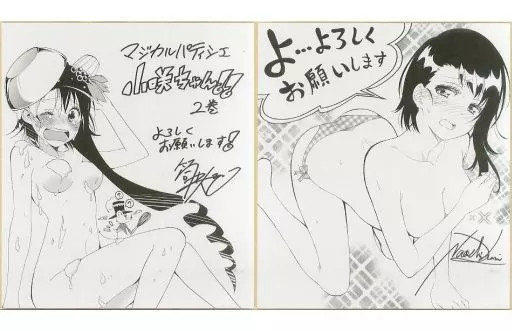 マジカルパティシエ
小咲ちゃん!!
2巻
よろしく
お願いします!
よ…よろしく
お願いします